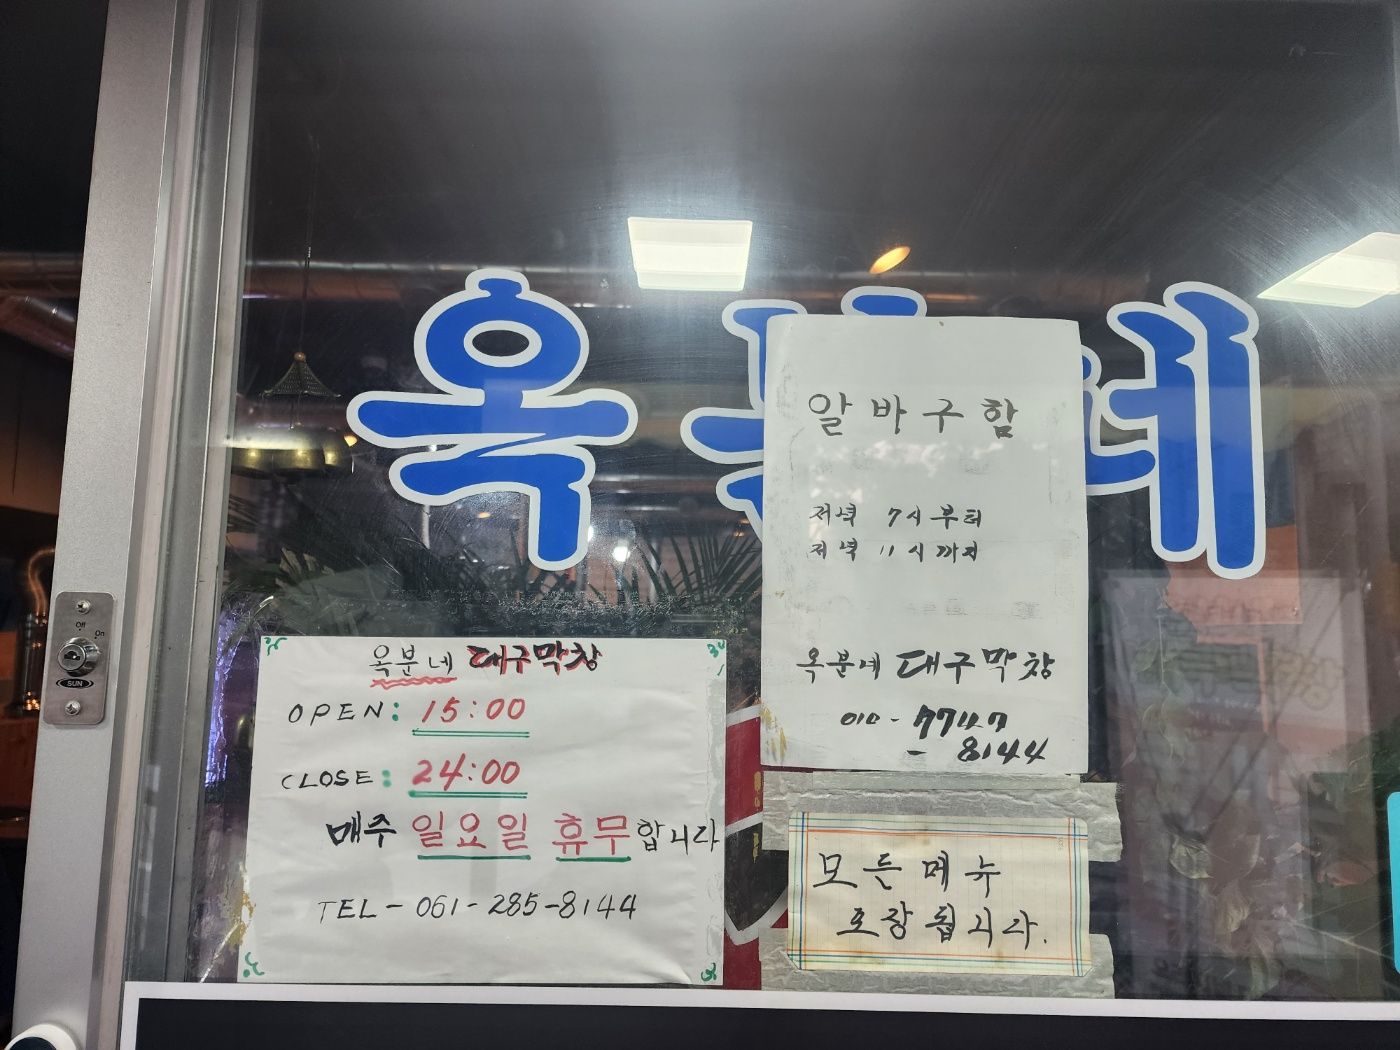 옥분네
알바구함
저녁 7시부터
저녁 11시까지
옥분네 대구막창
010-7747
-8144
옥분네 대구막창
OPEN: 15:00
CLOSE: 24:00
매주 일요일 휴무합니다
TEL-061-285-8144
모든메뉴
포장됩니다.
Off
On
SUN